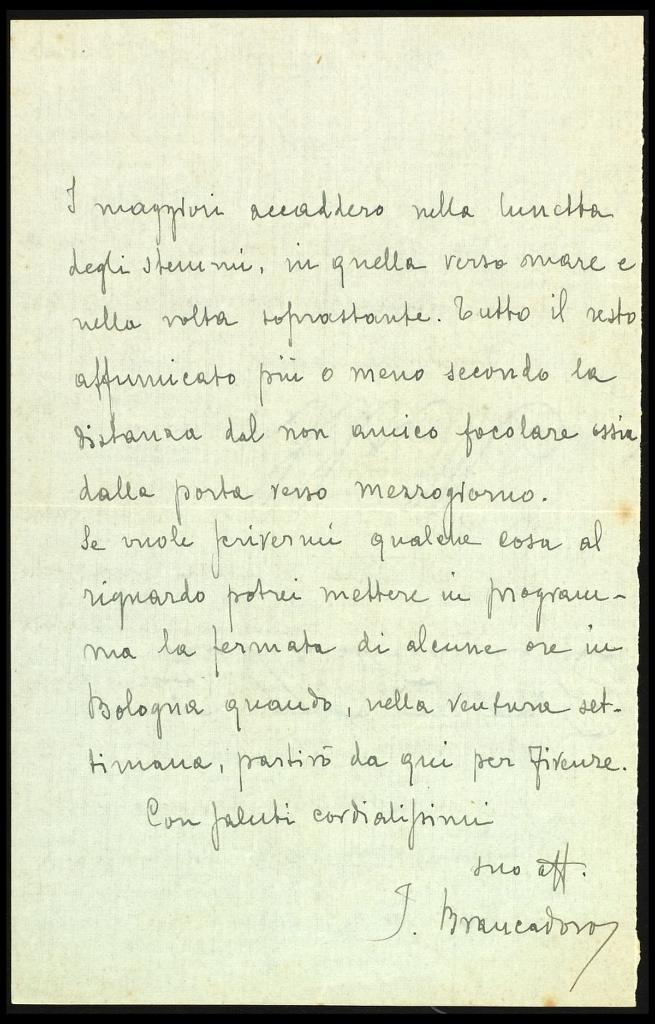 I maggiori accaddero nella lunetta
degli stemmi, in quella verso mare e
nella volta soprastante. Tutto il resto
affumicato più o meno secondo la
distanza dal non amico focolare ossia
dalla porta verso mezzogiorno.
Se vuole scrivermi qualche cosa al
riguardo potrei mettere in program-
ma la fermata di alcune ore in
Bologna quando, nella ventura set-
timana, partirò da qui per Firenze.
Con saluti cordialissimi
suo aff.
J. Brancadoro